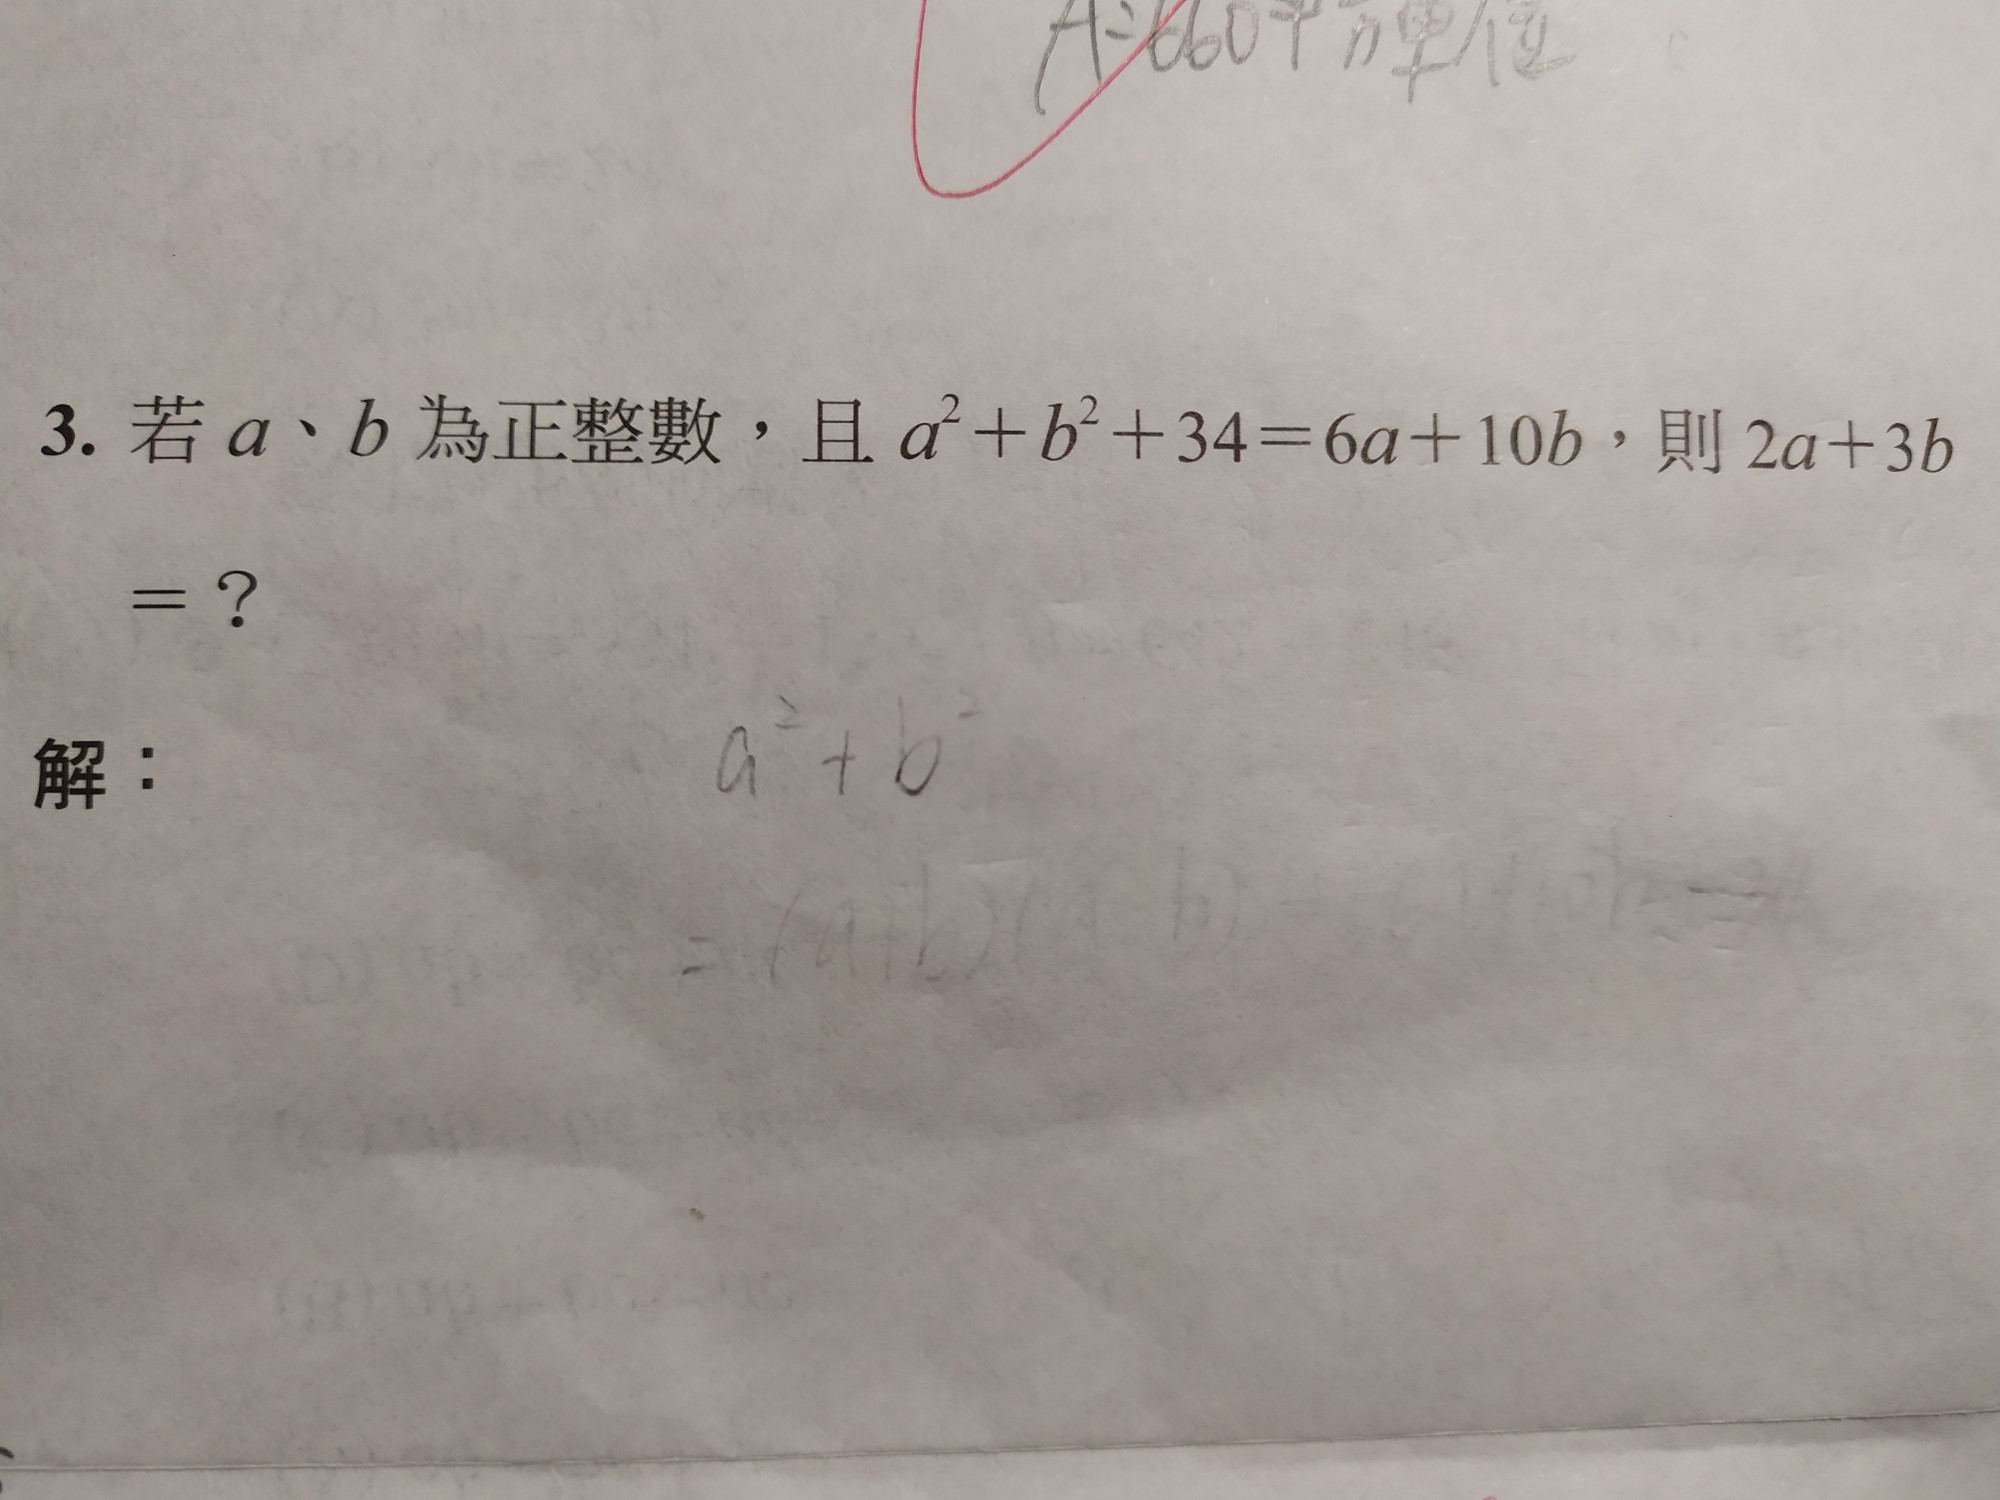 A=660平方單位
3. 若 a、b 為正整數，且 a²+b²+34=6a+10b，則 2a+3b
=？
解：
a²+b²
=